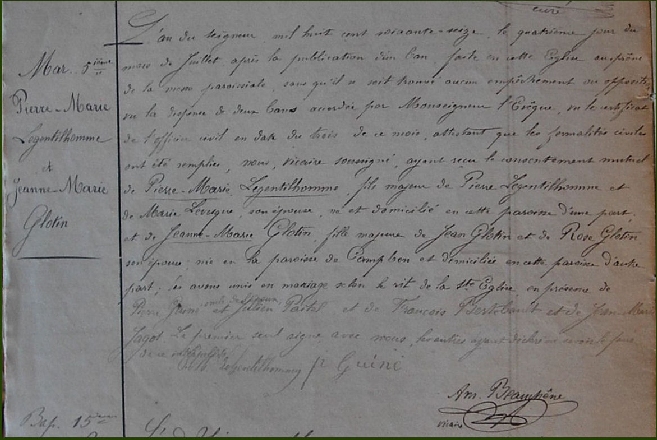 curé
Mar. 5ième
Pierre-Marie
Legentilhomme
et
Jeanne-Marie
Glotin
L'an du seigneur mil huit cent soixante-seize, le quatrième jour du
mois de Juillet après la publication d'un ban faite en cette Eglise au prône
de la messe paroissiale, sans qu'il se soit trouvé aucun empêchement ou opposition
vu la dispense de deux bans accordée par Monseigneur l'Evêque, vu le certificat
de l'officier civil en date du trois de ce mois, attestant que les formalités civiles
ont été remplies, nous, vicaire soussigné, ayant reçu le consentement mutuel
de Pierre-Marie Legentilhomme, fils majeur de Pierre Legentilhomme et
de Marie Levêque, son épouse, né et domicilié en cette paroisse d'une part,
et de Jeanne-Marie Glotin, fille majeure de Jean Glotin et de Rose Glotin
son épouse, née en la paroisse de et domiciliée en cette paroisse d'autre
part; les avons unis en mariage selon le rit de la Ste Eglise en présence de
Pierre et Julien et de François Bertehault et de Jean-Marie
Jagot. Le premier seul signe avec nous, les autres ayant déclaré ne savoir le faire
Legentilhomme Guiné
Am. Beauchêne
vicaire
Bap. 15